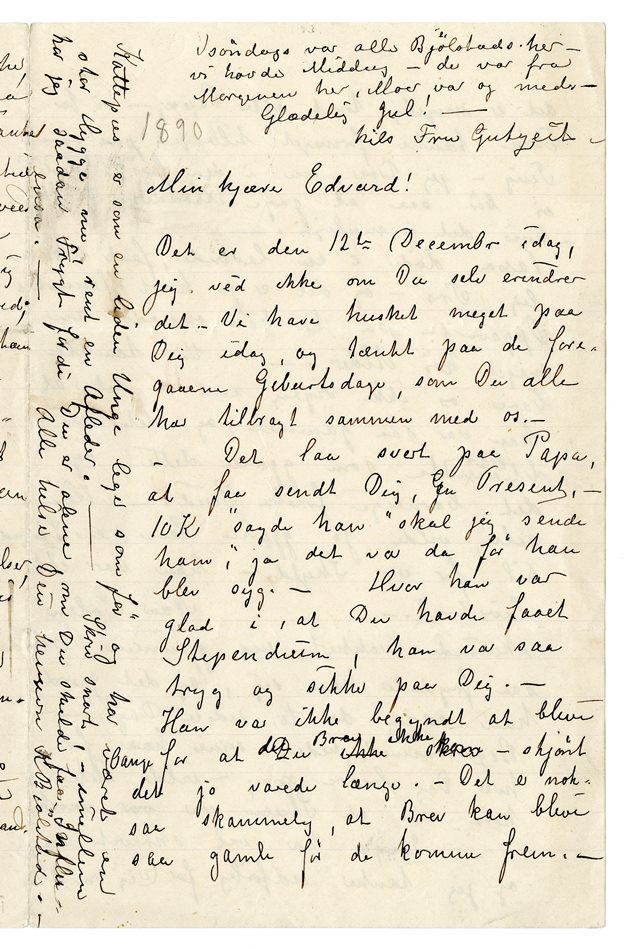 Isöndags var alle Bjölstads her –
vi havde Middag – de var fra
Morgenen her, Moer var og med. –
Glædelig Jul! –
hils Fru Gutzeit –
1890
Min kjære Edvard!
Det er den 12te Decembr idag,
jeg véd ikke om Du selv erindrer
det – Vi have husket meget paa
Dig idag, og tænkt paa de fore-
gaaene Geburtsdage, som Du alle
har tilbragt sammen med os. –
– Det laa svert paa Papa,
at faa sendt Dig, Present, –
10 K "sagde han" skal jeg sende
ham", ja det va da før han
blev syg. – Hvor han var
glad i, at Du havde faaet
Stependium, han va saa
tryg og sikke paa Dig. –
Han va ikke begyndt at blive
bange for at det Brev ikke kom – skjönt
det jo varede længe. – Det e nok-
saa skammelig, at Brev kan blive
saa gamle för de komme frem. –
Kattepus er som en liden Unge lige som för og har været en
stor Hygge nu rent en Afleder. – Skriv snart! – imellem
har jeg saadan Frygt fordi Du er alene, om Du skulde faa Influ-
ensa. – Alle helse Din hengivn KBjölstad. –